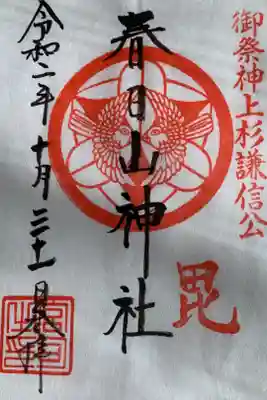 御祭神上杉謙信公
毘
春日山神社
令和二年十月三十一日奉拝